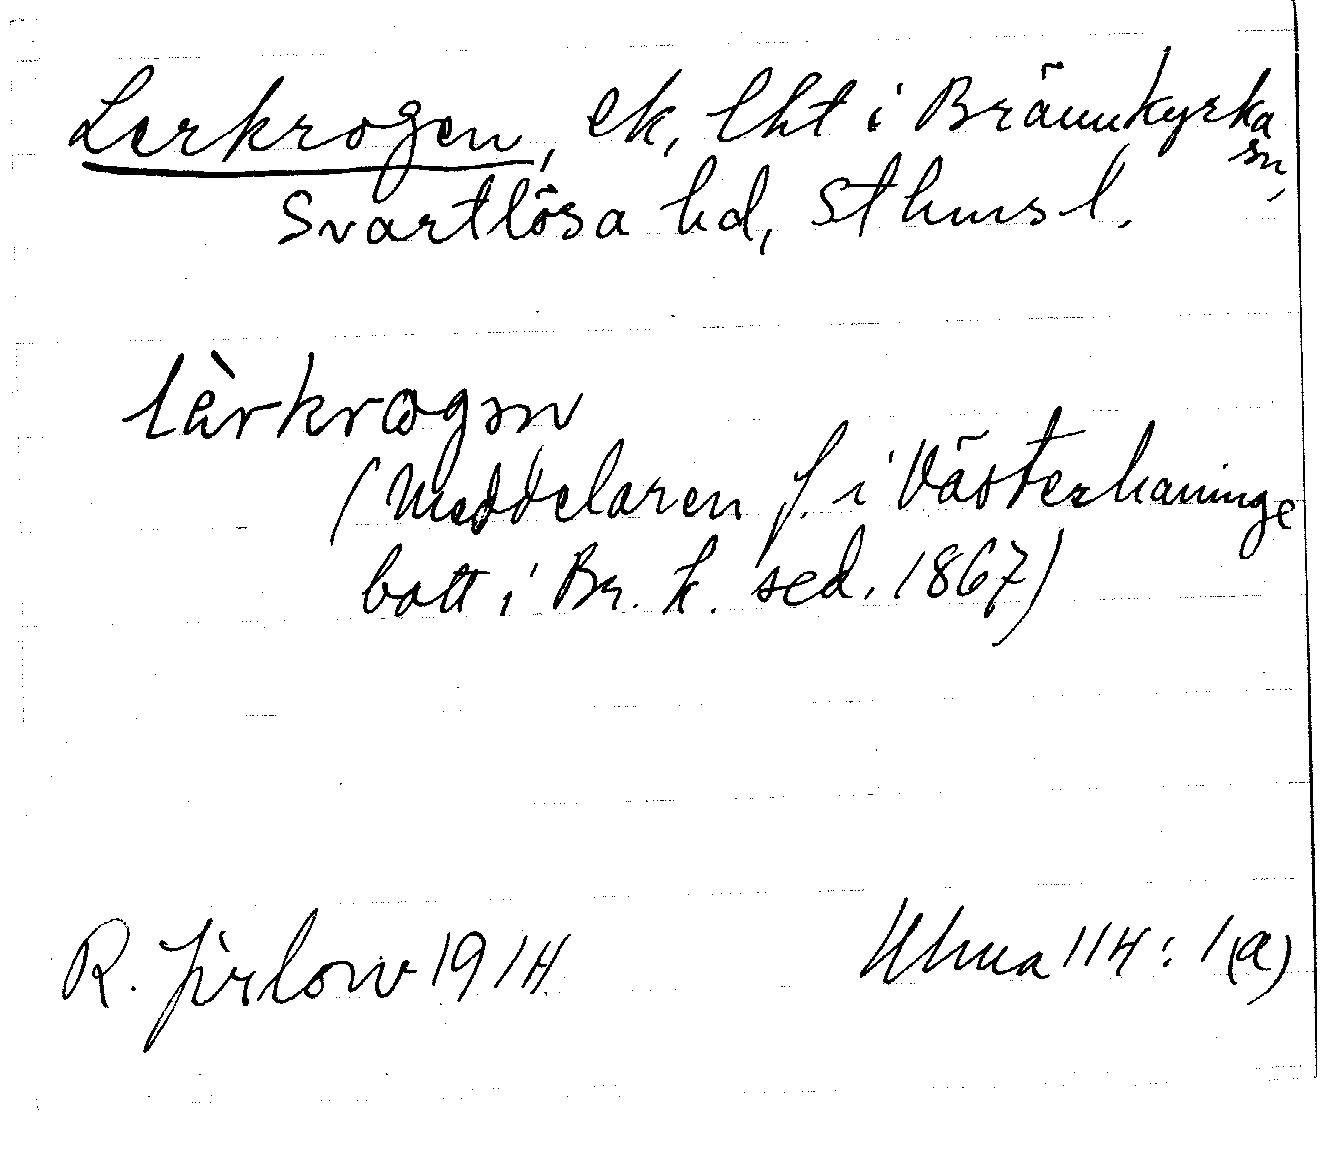 Lerkrogen, ek, lht i Brännkyrka sn,
Svartlösa hd, Sthms l.
lèrkrogən
(Meddelaren f. i Västerhaninge
bott i Br. k. sed. 1867)
R. Jirlow 1914 Ulma 114: 1(a)